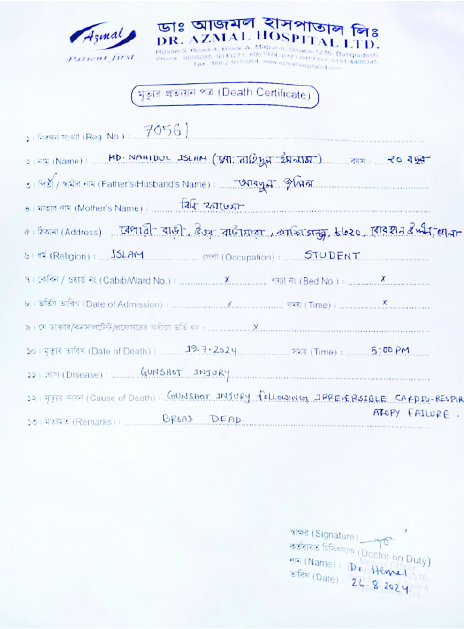 Azmal
Patient First
ডাঃ আজমল হাসপাতাল লিঃ
DR. AZMAL HOSPITAL LTD.
মৃত্যুর প্রত্যয়ন পত্র (Death Certificate)
১। নিবন্ধন সংখ্যা (Reg. No.) : 70561
২। নাম (Name) : MD. NAHIDUL ISLAM (মো. নাহিদুল ইসলাম) বয়স : ২০ বছর
৩। পিতা / স্বামীর নাম (Father's/Husband's Name) : আবদুল
৪। মাতার নাম (Mother's Name) : বিবি ফাতেমা
৫। ঠিকানা (Address) : বেপারী বাড়ী, উত্তর বাটামারা, ৮৭২০,
৬। ধর্ম (Religion) : ISLAM পেশা (Occupation) : STUDENT
৭। কেবিন / ওয়ার্ড নং (Cabib/Ward No.) : X শয্যা নং (Bed No.) : X
৮। ভর্তির তারিখ (Date of Admission) : X সময় (Time) : X
৯। যে ডাক্তার/কনসালটেন্ট/প্রফেসরের অধীনে ভর্তি হন : X
১০। মৃত্যুর তারিখ (Date of Death) : 19.7.2024 সময় (Time) : 5:00 PM
১১। রোগ (Disease) : GUNSHOT INJURY
১২। মৃত্যুর কারন (Cause of Death) : GUNSHOT INJURY FOLLOWING IRREVERSIBLE CARDIO-RESPIR
ATORY FAILURE.
১৩। মতামত (Remarks) : BROAD DEAD
স্বাক্ষর (Signature)
কর্তব্যরত চিকিৎসক (Doctor on Duty)
নাম (Name) : Dr. Hemel
তারিখ (Date) : 26.8.2024